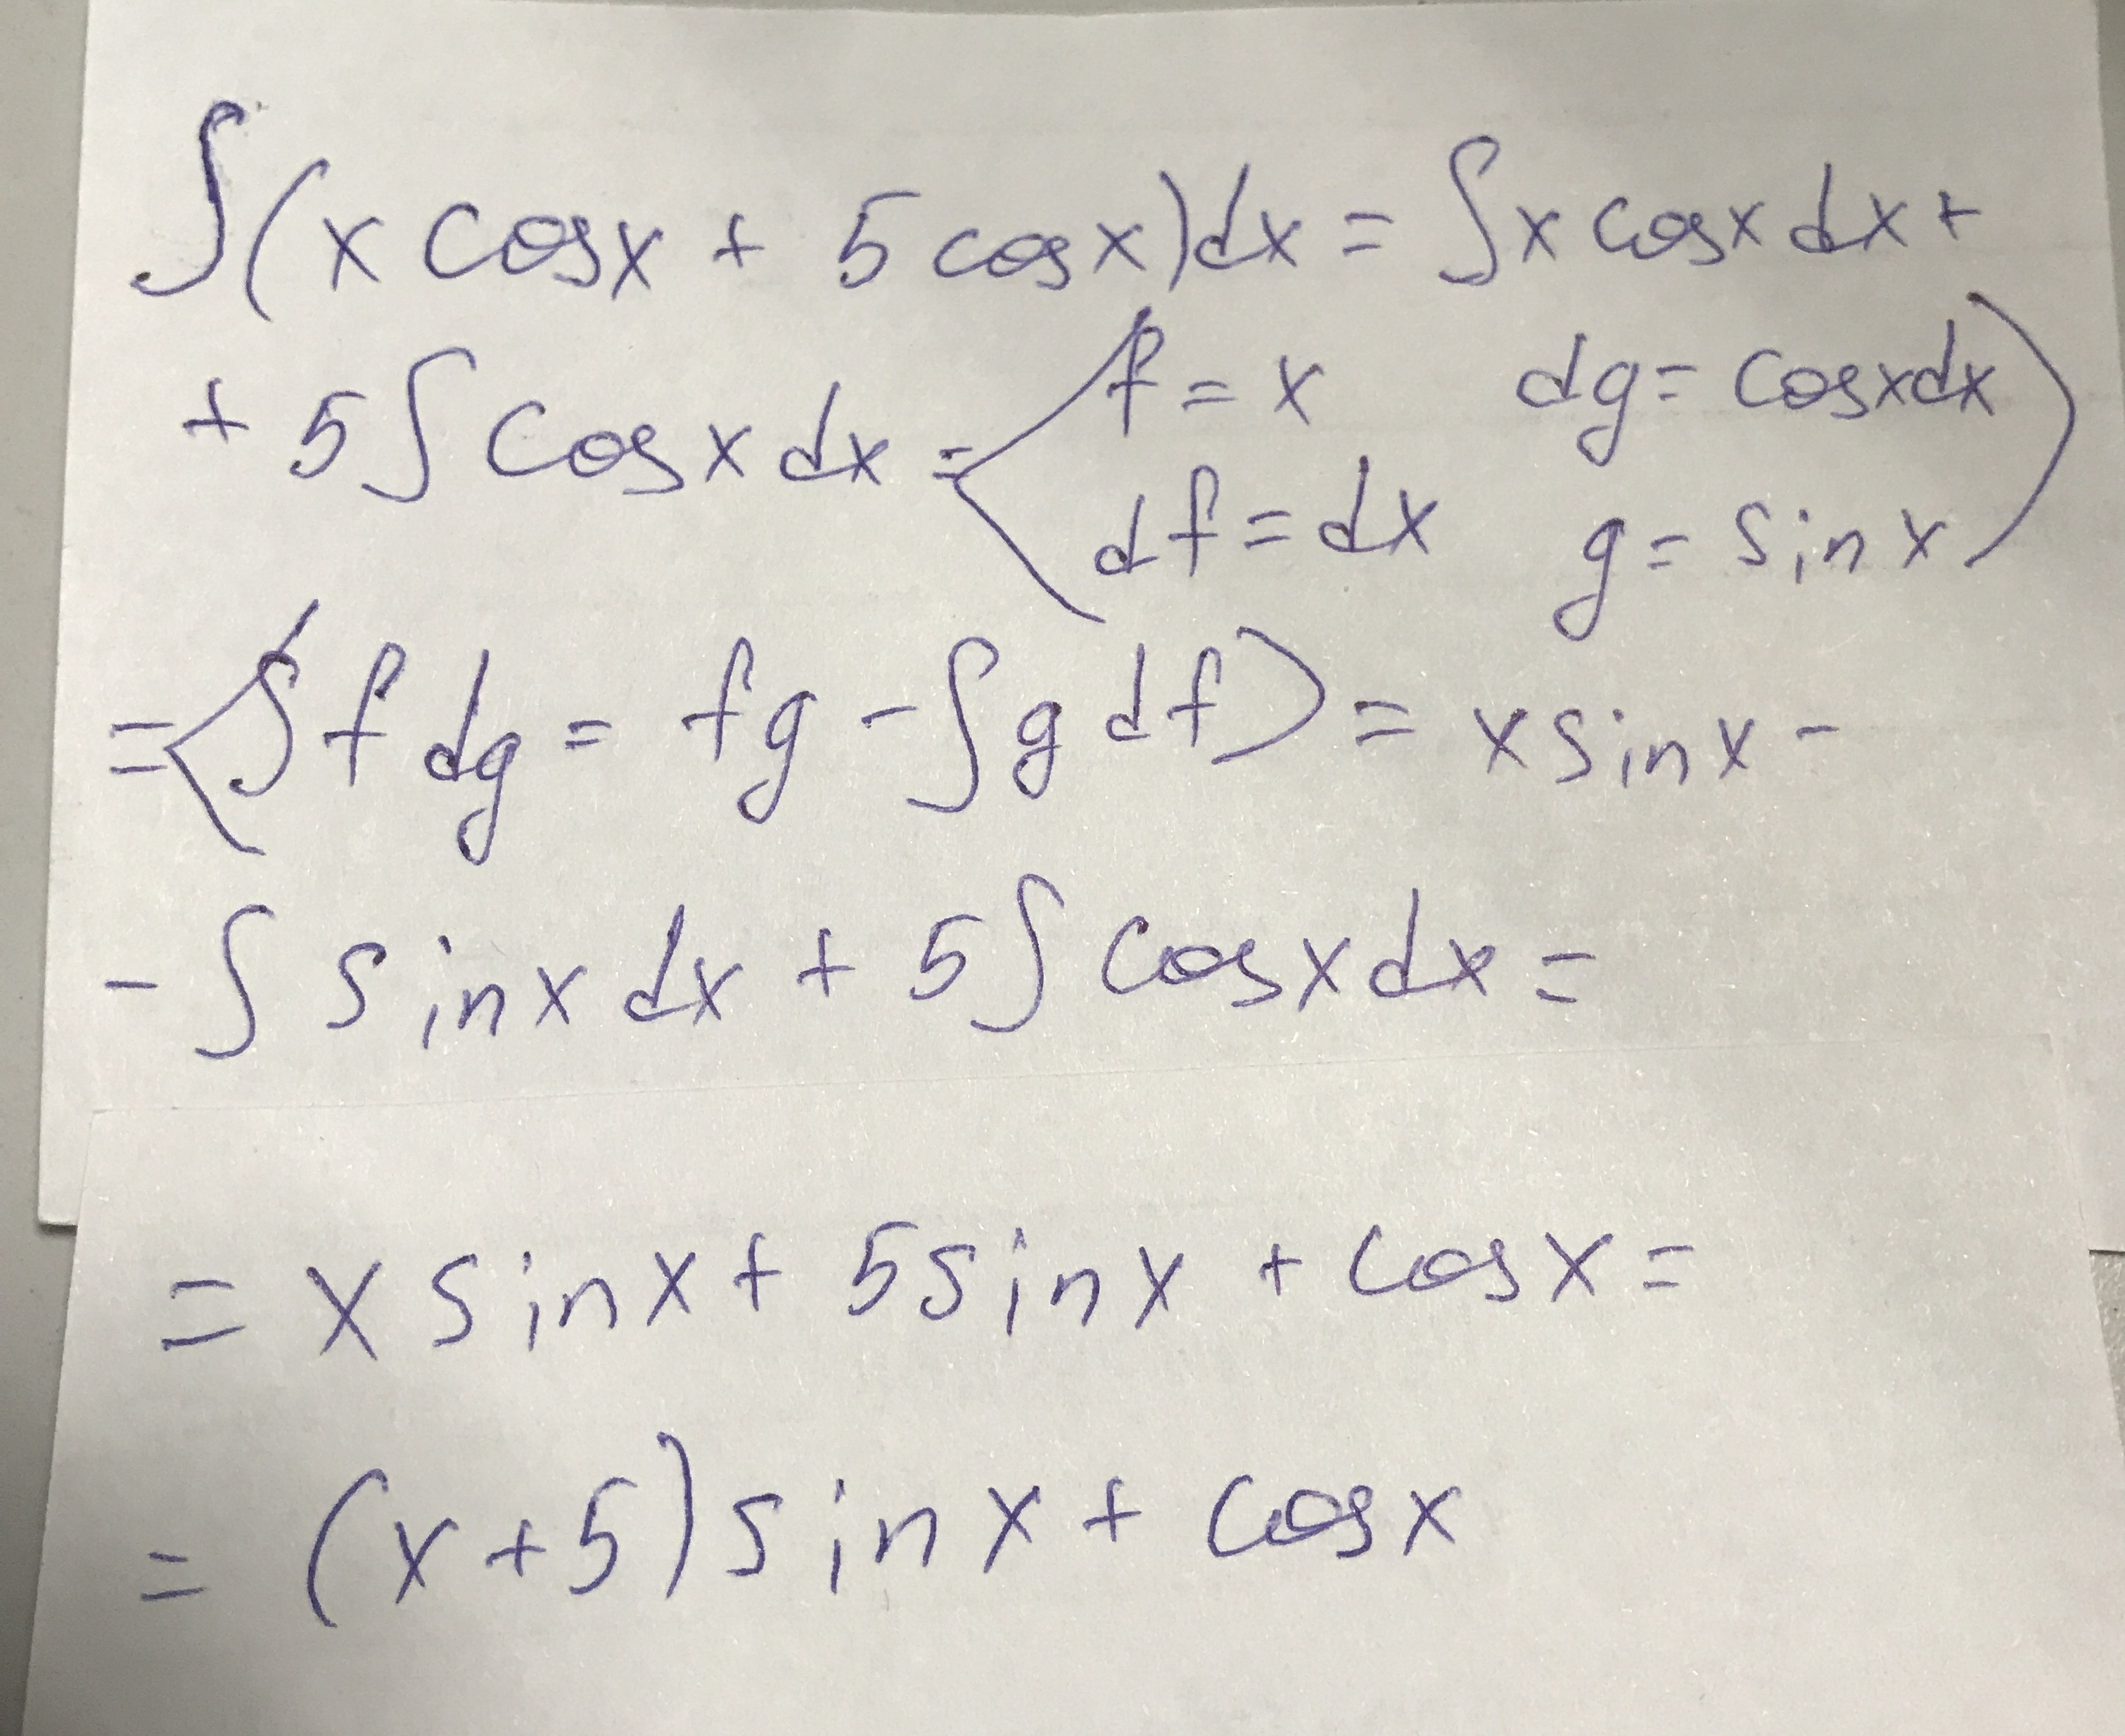 ∫(x cosx + 5 cosx)dx = ∫x cosx dx +
+ 5∫ cosx dx = ⟨f = x dg = cosxdx
df = dx g = sinx)
= ⟨∫f dg = fg - ∫g df) = x sinx -
- ∫ sinx dx + 5∫ cosx dx =
= x sinx + 5 sinx + cosx =
= (x+5) sinx + cosx